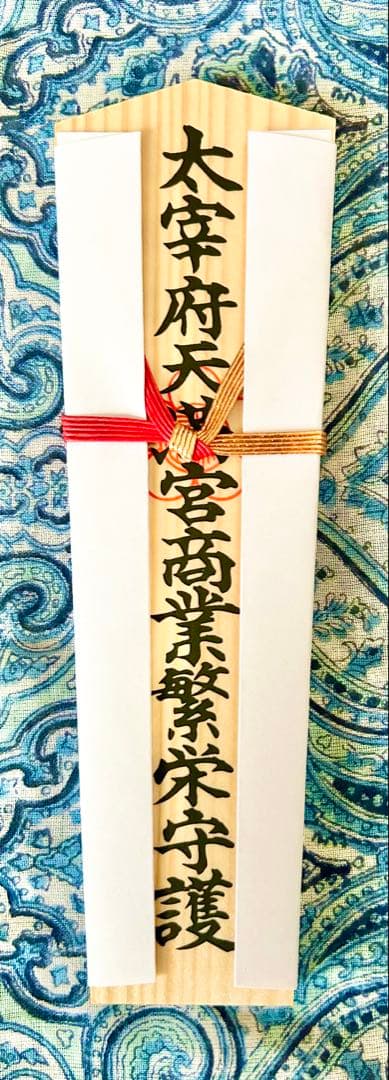 太宰府天満宮商業繁栄守護